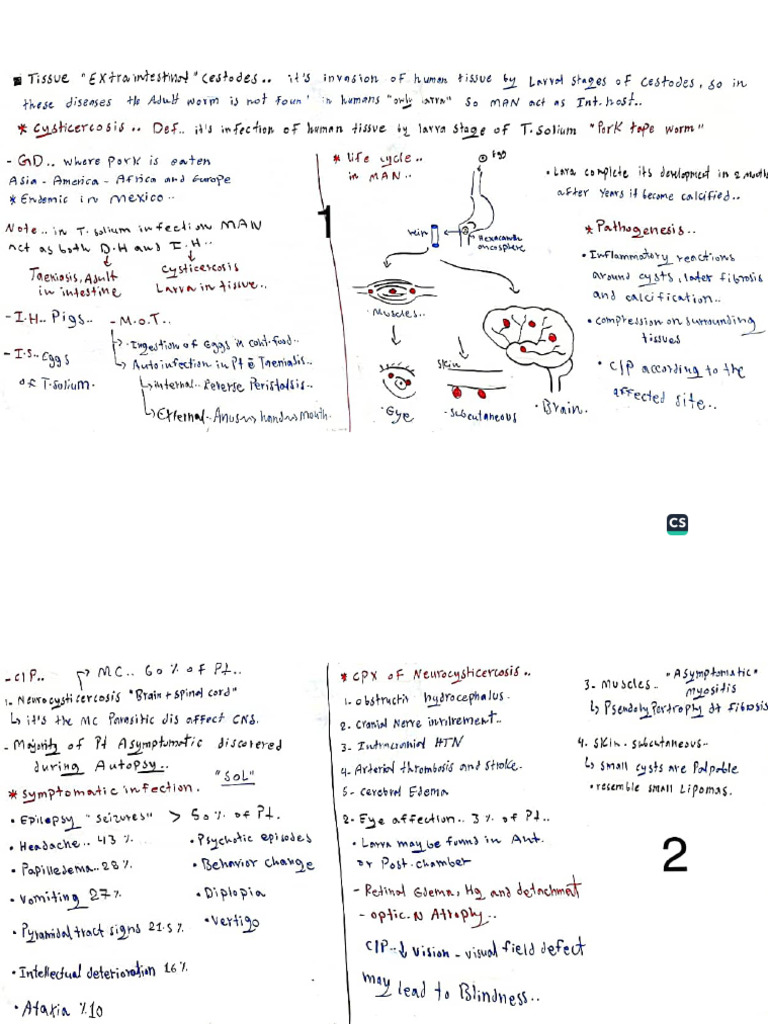 ▪ Tissue "Extraintestinal" Cestodes.. it's invasion of human tissue by Larval stages of Cestodes, so in
these diseases the Adult worm is not foun' in humans "only larva" so MAN act as Int. host..
* Cysticercosis .. Def.. it's infection of human tissue by larva stage of T. solium "Pork tape worm"
- GD.. where Pork is eaten
Asia - America - Africa and Europe
* Endemic in Mexico..
Note.. in T. solium infection MAN
act as both D.H and I.H..
Taeniasis, Adult
in intestine
Cysticercosis
Larva in tissue..
- I.H.. Pigs..
- I.S.. Eggs
of T. solium.
- M.O.T..
· Ingestion of Eggs in cont. food..
Autoinfection in Pt ē Taeniasis..
internal.. Reverse Peristalsis..
External.. Anus hand mouth.
1
* life cycle..
in MAN..
Egg
vein
Hexacanth
oncosphere
· Muscles..
· Eye
skin
- subcutaneous
· Brain.
• Larva complete its development in 2 months
after years it become calcified..
* Pathogenesis..
• Inflammatory reactions
around cysts, later fibrosis
and calcification..
• compression on surrounding
tissues
• C/P according to the
affected site..
CS
- C/P..
MC.. 60 % of Pt..
1- Neurocysticercosis "Brain + spinal cord"
it's the MC Parasitic dis affect CNS.
- Majority of Pt Asymptomatic discovered
during Autopsy..
* symptomatic infection. "SOL"
• Epilepsy "seizures" > 50 % of Pt.
• Headache.. 43 %
• Papilledema.. 28 %
• Vomiting 27 %
• Pyramidal tract signs 21.5 %
• Intellectual deterioration 16 %
• Ataxia %10
• Psychotic episodes
• Behavior change
• Diplopia
• Vertigo
* CPX of Neurocysticercosis..
1. obstructiv hydrocephalus.
2. Cranial Nerve involvement..
3. Intracranial HTN
4- Arterial thrombosis and stroke.
5- cerebral Edema
2- Eye affection.. 3 % of Pt..
• Larva may be found in Ant.
or Post. chamber
- Retinal Edema, Hg and detachment
- optic. N Atrophy..
C/P.. ↓ vision - visual field defect
may lead to Blindness..
3- Muscles.. "Asymptomatic"
myositis
Pseudohypertrophy dt fibrosis
4. skin. subcutaneous..
small cysts are Palpable
• resemble small Lipomas.
2